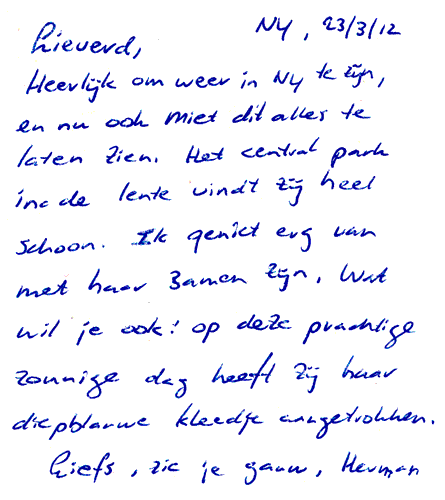 NY, 23/3/12
Lieverd,
Heerlijk om weer in NY te zijn,
en nu ook Miet dit alles te
laten zien. Het central park
in de lente vindt zij heel
schoon. Ik geniet erg van
met haar samen zijn. Wat
wil je ook! op deze prachtige
zonnige dag heeft zij haar
diepblauwe kleedje aangetrokken.
Liefs, zie je gauw, Herman